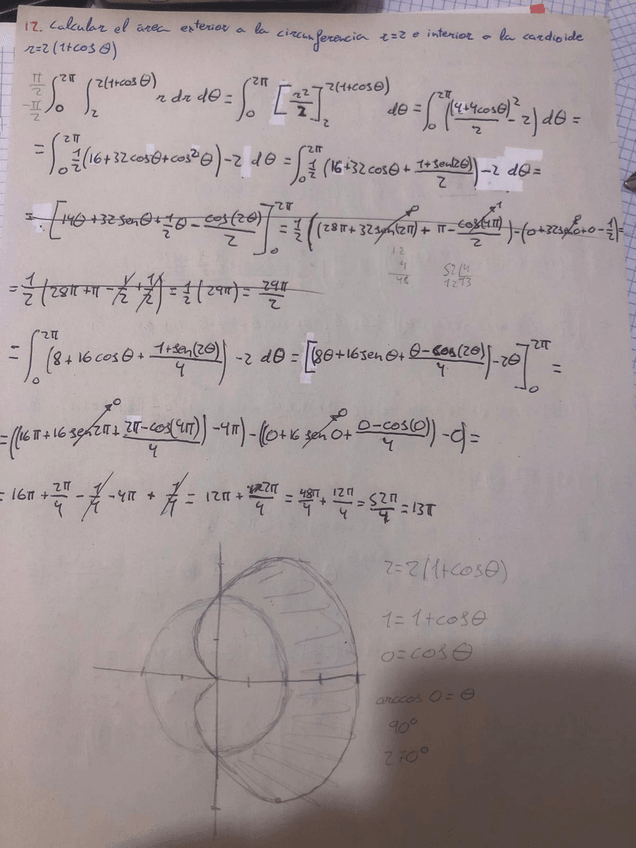 12. Calcular el área exterior a la circunferencia r=2 e interior a la cardioide
r=2(1+cosθ)
π/2 -π/2 ∫₀^{2π} ∫₂^{2(1+cosθ)} r dr dθ = ∫₀^{2π} [r²/2]₂^{2(1+cosθ)} dθ = ∫₀^{2π} ((4+4cosθ)²/2 - 2) dθ =
= ∫₀^{2π} 1/2 (16+32cosθ+cos²θ) - 2 dθ = ∫₀^{2π} 1/2 (16+32cosθ + (1+sen(2θ))/2) - 2 dθ =
= [14θ + 32senθ + 1/2 θ - cos(2θ)/2]₀^{2π} = 1/2 ((28π + 32sen(2π) + π - cos(4π)/2) - (0 + 32sen0 + 0 - 1/2) =
= 1/2 (28π + π - 1/2 + 1/2) = 1/2 (29π) = 29π/2
= ∫₀^{2π} (8 + 16cosθ + (1+sen(2θ))/4) - 2 dθ = [(8θ + 16senθ + (θ-cos(2θ))/4) - 2θ]₀^{2π} =
= ((16π + 16sen2π + (2π-cos(4π))/4) - 4π) - ((0 + 16sen0 + (0-cos(0))/4) - 0) =
= 16π + 2π/4 - 1/4 - 4π + 1/4 = 12π + 2π/4 = 48π/4 + 12π/4 = 52π/4 = 13π
2=2(1+cosθ)
1=1+cosθ
0=cosθ
arccos 0=θ
90°
270°